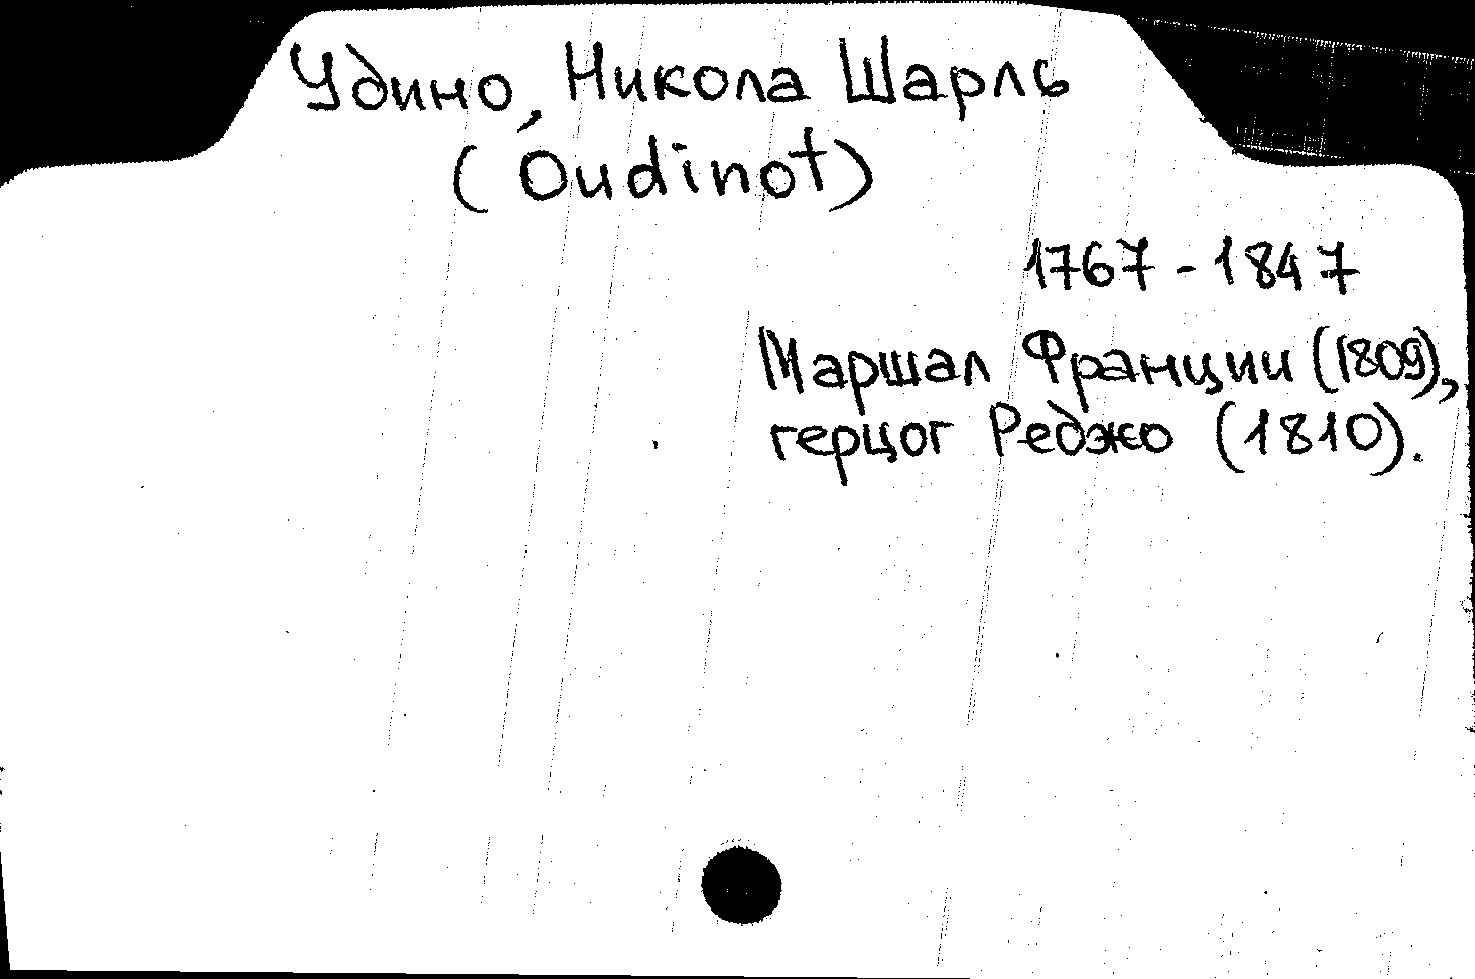 Удино, Никола Шарль
(Oudinot)
1767 - 1847
Маршал Франции (1809),
герцог Реджо (1810).